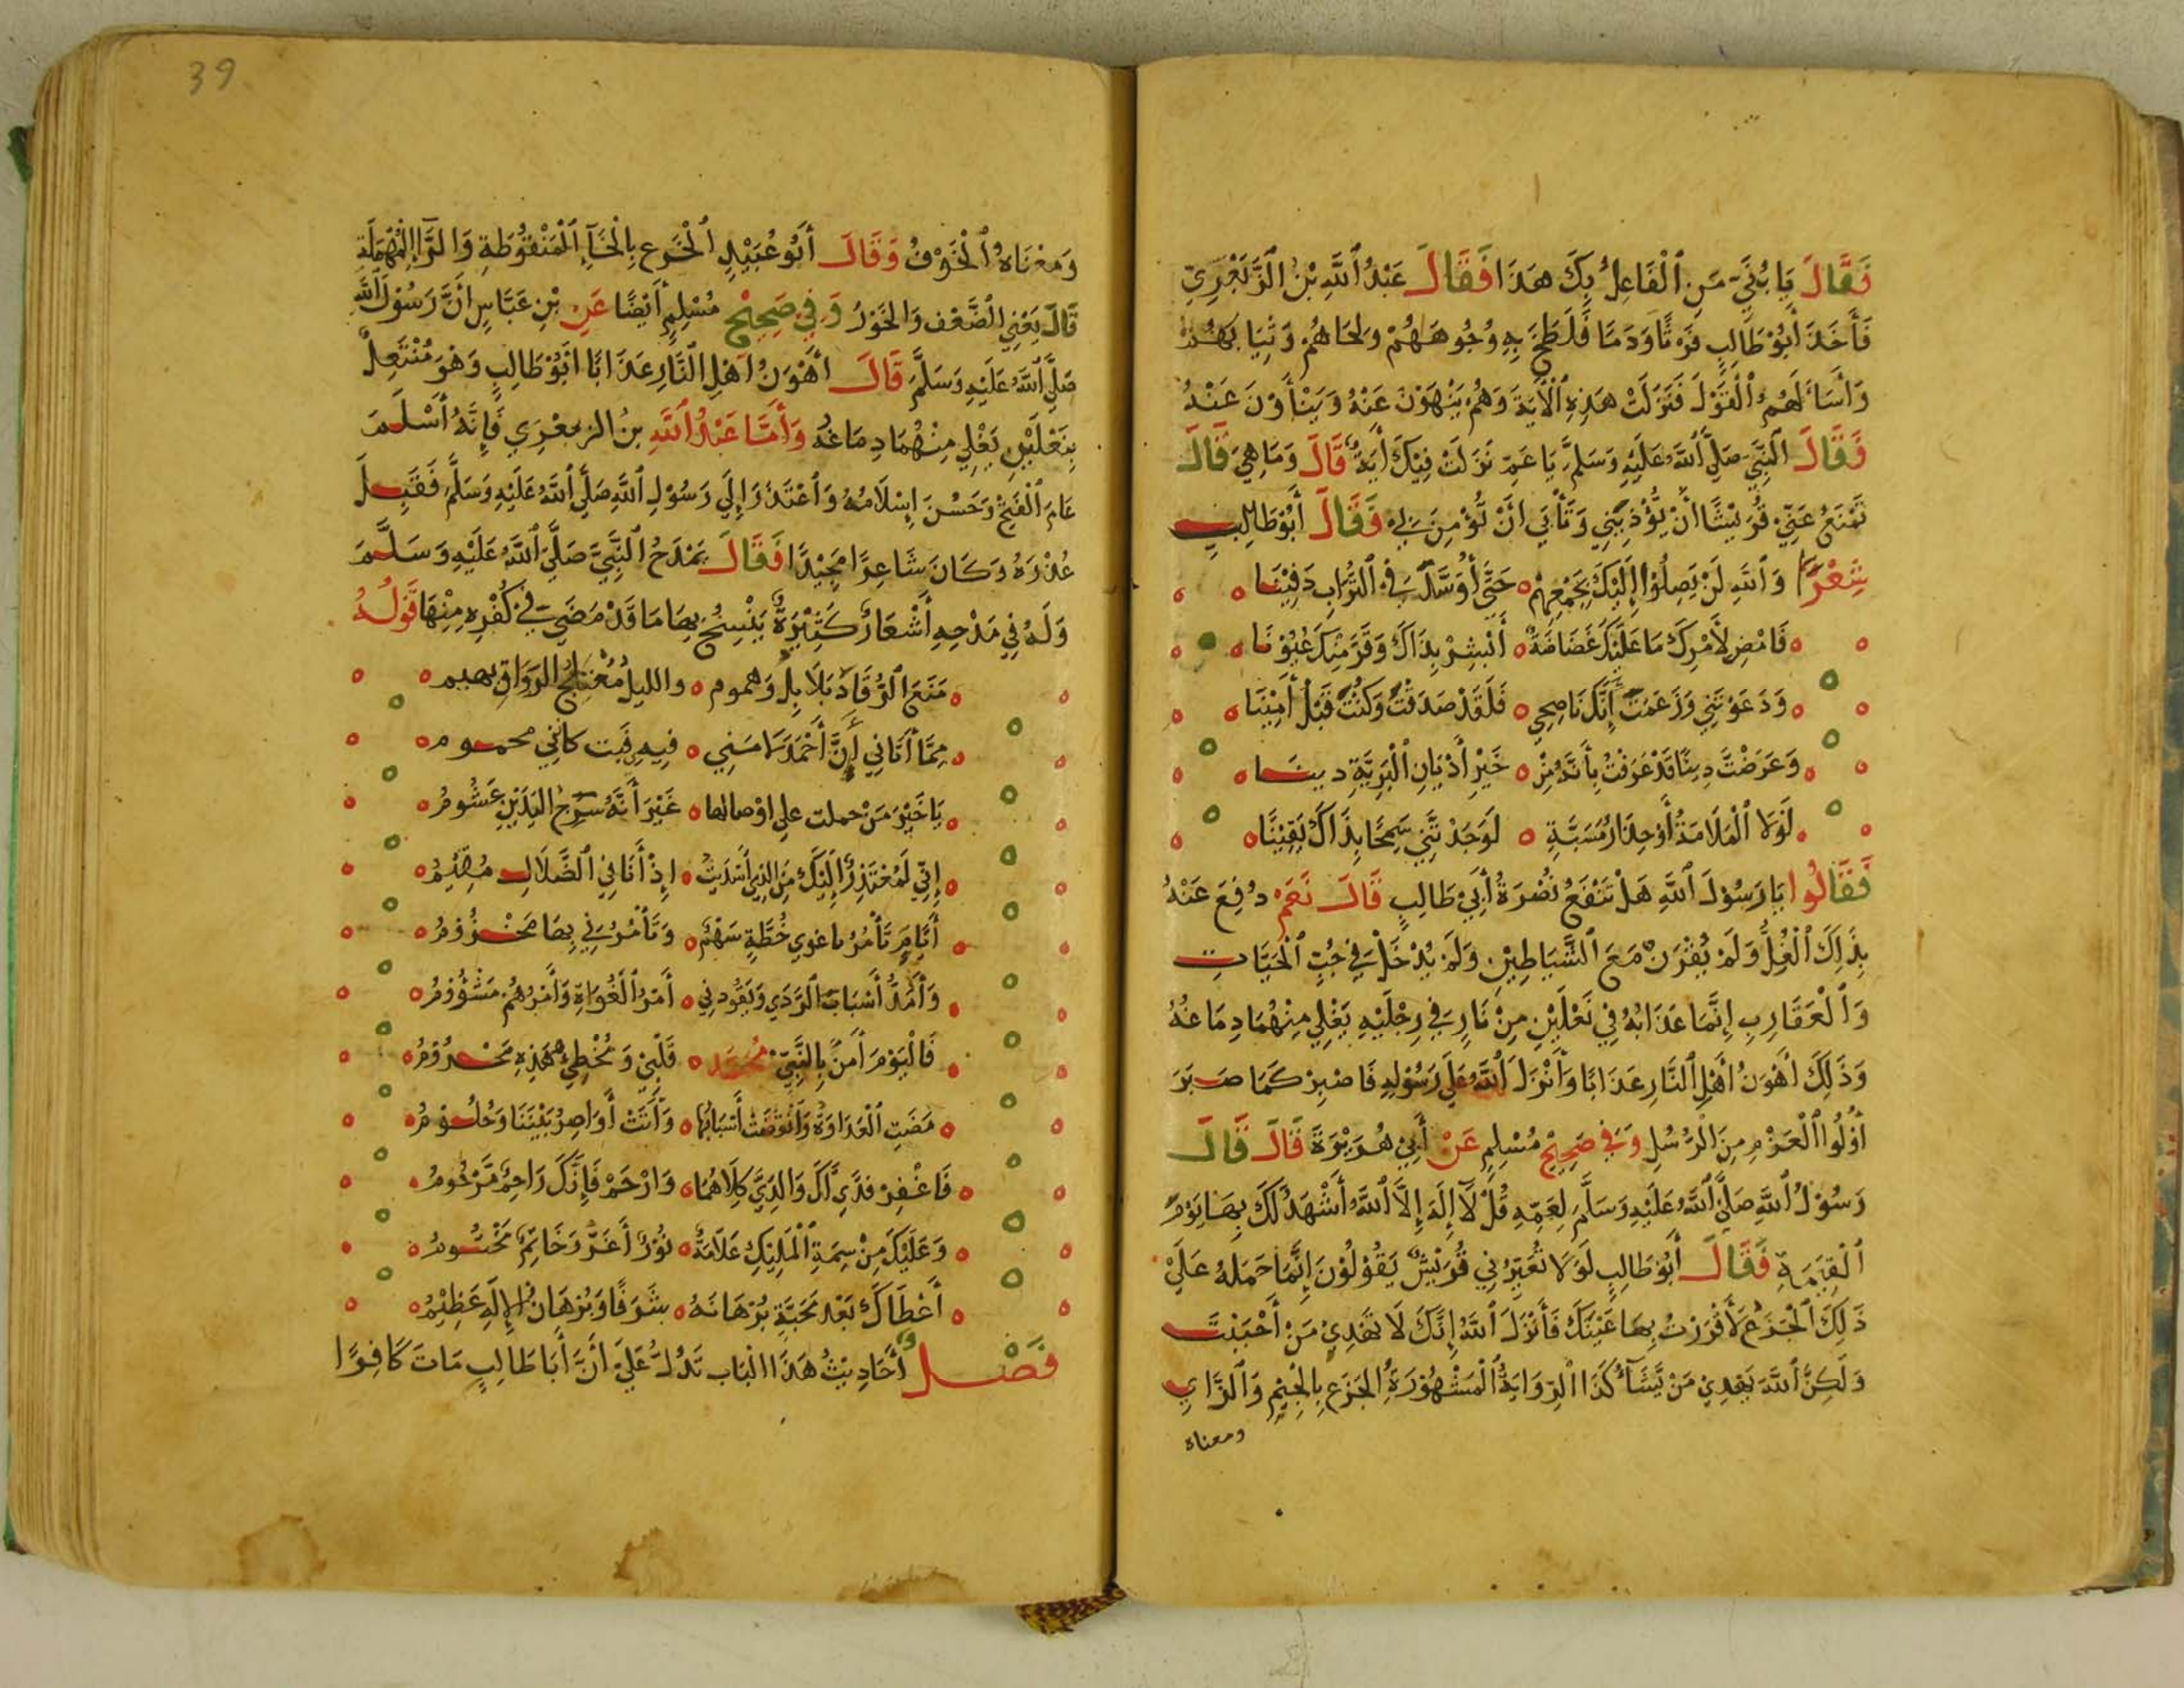 فَقَالَ يَا بُنَيَّ مَنِ ٱلْفَاعِلُ بِكَ هَذَا فَقَالَ عَبْدُ ٱللَّهِ بْنُ ٱلزَّبَعْرِي
فَأَخَذَ أَبُوْ طَالِبٍ فَرْثًا وَدَمًا فَلَطَخَ بِهِ وُجُوهَهُمْ وَلِحَاهُمْ وَثِيَابَهُمْ
وَأَسَاءَ لَهُمُ ٱلْقَوْلَ فَنَزَلَتْ هَذِهِ ٱلْآيَةَ وَهُمْ يَنْهَوْنَ عَنْهُ وَيَنْأَوْنَ عَنْهُ
فَقَالَ ٱلنَّبِيُّ صَلَّى ٱللَّهُ عَلَيْهِ وَسَلَّمَ يَا عَمِّ نَزَلَتْ فِيْكَ أَيَةٌ قَالَ وَمَا هِيَ قَالَ
تَمْنَعُ عَنِّيْ قُرَيْشًا أَنْ يُّؤْذِيَنِي وَتَأْبَي أَنْ تُؤْمِنَ بِي فَقَالَ أَبُوْ طَالِبٍ
شِعْرًا وَٱللَّهِ لَنْ يَصِلُوْا إِلَيْكَ بِجَمْعِهِمْ حَتَّى أُوَسَّدَ فِي ٱلتُّرَابِ دَفِيْنَا
فَامْضِ لِأَمْرِكَ مَا عَلَيْكَ غَضَاضَةٌ أَبْشِرْ بِذَاكَ وَقَرَّ مِنْكَ عُيُوْنَا
وَدَعَوْتَنِي وَزَعَمْتَ إِنَّكَ نَاصِحِي فَلَقَدْ صَدَقْتَ وَكُنْتَ قَبْلُ أَمِيْنَا
وَعَرَضْتَ دِيْنًا قَدْ عَرَفْتُ بِأَنَّهُ مِنْ خَيْرِ أَدْيَانِ ٱلْبَرِيَّةِ دِينَا
لَوْلَا ٱلْمَلَامَةُ أَوْ حِذَارُ مَسَبَّةِ لَوَجَدْتَنِي سَمِحًا بِذَاكَ يَقِيْنًا
فَقَالُوا يَا رَسُوْلَ ٱللَّهِ هَلْ تَنْفَعُ نُصْرَةُ أَبِيْ طَالِبٍ قَالَ نَعَمْ دُفِعَ عَنْهُ
بِذَلِكَ ٱلْغُلُّ وَلَمْ يُقْرَنْ مَعَ ٱلشَّيَاطِيْنِ وَلَمْ يُدْخَلْ فِي جُبِّ ٱلْحَيَّاتِ
وَٱلْعَقَارِبِ إِنَّمَا عَذَابُهُ فِيْ نَعْلَيْنِ مِنْ نَارٍ فِي رِجْلَيْهِ يَغْلِي مِنْهُمَا دِمَاغُهُ
وَذَلِكَ أَهْوَنُ أَهْلِ ٱلنَّارِ عَذَابًا وَأَنْزَلَ ٱللَّهُ عَلَي رَسُوْلِهِ فَاصْبِرْ كَمَا صَبَرَ
أُوْلُوا ٱلْعَزْمِ مِنَ ٱلرُّسُلِ وَفِي صَحِيْحِ مُسْلِمٍ عَنْ أَبِيْ هُرَيْرَةَ قَالَ قَالَ
رَسُوْلُ ٱللَّهِ صَلَّى ٱللَّهُ عَلَيْهِ وَسَلَّمَ لِعَمِّهِ قُلْ لَآ إِلَهَ إِلَّا ٱللَّهُ أَشْهَدُ لَكَ بِهَا يَوْمَ
ٱلْقِيَمَةِ فَقَالَ أَبُوْ طَالِبٍ لَوْلَا تُعَيِّرُنِي قُرَيْشٌ يَقُوْلُوْنَ إِنَّمَا حَمَلَهُ عَلَيْ
ذَلِكَ ٱلْجَزَعُ لَأَقْرَرْتُ بِهَا عَيْنَكَ فَأَنْزَلَ ٱللَّهُ إِنَّكَ لَا تَهْدِيْ مَنْ أَحْبَبْتَ
وَلَكِنَّ ٱللَّهَ يَهْدِيْ مَنْ يَّشَآءُ كَذَا ٱلرِّوَايَةُ ٱلْمَشْهُوْرَةُ ٱلْجَزَعِ بِالْجِيْمِ وَٱلزَّاي
ومعناه
39
وَمَعْنَاهُ ٱلْخَوْفُ وَقَالَ أَبُوْ عُبَيْدٍ ٱلْخَرَع بِالْخَآءِ ٱلْمَنْقُوْطَةِ وَالرَّاءِ ٱلْمُهْمَلَةِ
قَالَ يَعْنِي ٱلضَّعْفَ وَالْخَوَرُ وَفِيْ صَحِيْحِ مُسْلِمٍ أَيْضًا عَنِ بْنِ عَبَّاسٍ أَنَّ رَسُوْلَ ٱللَّهِ
صَلَّى ٱللَّهُ عَلَيْهِ وَسَلَّمَ قَالَ أَهْوَنُ أَهْلِ ٱلنَّارِ عَذَابًا أَبُوْ طَالِبٍ وَهْوَ مُنْتَعِلٌ
بِنَعْلَيْنِ يَغْلِي مِنْهُمَا دِمَاغُهُ وَأَمَّا عَبْدُ ٱللَّهِ بنُ الزبعْرِي فَإِنَّهُ أَسْلَمَ
عَامَ ٱلْفَتْحِ وَحَسُنَ إِسْلَامُهُ وَٱعْتَذَرَ إِلَي رَسُوْلِ ٱللَّهِ صَلَّي ٱللَّهُ عَلَيْهِ وَسَلَّمَ فَقَبِلَ
عُذْرَهُ وَكَانَ شَاعِرًا مُجِيْدًا فَقَالَ يَمْدَحُ ٱلنَّبِيَّ صَلَّى ٱللَّهُ عَلَيْهِ وَسَلَّمَ
وَلَهُ فِي مَدْحِهِ أَشْعَارٌ كَثِيْرَةٌ يَنْسِخُ بِهَا مَا قَدْ مَضَي فِيْ كُفْرِهِ مِنْهَا قَوْلُهُ
مَنَعَ ٱلرُّقَادَ بَلَابِلٌ وَهموم والليلُ مُعْتَلِجُ الرَوَاقِ بهيم
مِمَّا أَتَانِي أَنَّ أَحْمَدَ لَامَنِي فِيهِ فَبَت كَانّني محموم
يَا خَيْرَ مَنْ حملت علي اوْصالها غَيْرَ أَنَّهُ سَرِجُ اليَدَيْنِ غَشُومُ
إِنِّي لَمُعْتَذِرٌ إِلَيْكَ مِنَ الذِي أَسْدَيْتُ إِذْ أَنَا فِيْ ٱلضَّلَالِ مُقِيْمُ
أَيَّامَ تَأْمُرُ باغوي خُطَّةٍ سَهْمٌ وَتَأْمُرُنِي بِهَا مَخْزُوْمُ
وَأَمُدُّ أَسْبَابَ ٱلرَّدَي وَيَقُودنِي أَمْرُ ٱلْغُوَاةِ وَأَمْرُهُمْ مَشْؤُوْمُ
فَالْيَوْمَ أَمَنَ بِالنَّبِيِّ مُحَمَّدٍ قَلْبِيْ وَمُخْطِئُ هَذِهِ مَحْرُوْمُ
مَضَتِ ٱلْعَدَاوَةُ وَٱنْقَضَتْ أَسْبَابُهَا وَأَتَتْ أَوَاصِرُ بَيْنَنَا وَحُلُوْمُ
فَاغْفِرْ فدَي لَكَ وَالِدَيَّ كِلَاهُمَا وَارْحَمْ فَإِنَّكَ رَاحِمٌ مَرْحُومُ
وَعَلَيْكَ مِنْ سِمَةِ ٱلْمَلِيْكِ عَلَامَةٌ نُوْرٌ أَغَرُّ وَخَاتِمٌ مَخْتُومُ
أَعْطَاكَ بَعْدَ مَحَبَّةٍ بُرْهَانَهُ شَرَفًا وَبُرْهَانُ ٱلإِلَهِ عَظِيْمُ
فَصْل أَحَادِيْثُ هَذَا ٱلْبَابِ تَدُلُّ عَلَيْ أَنَّ أَبَا طَالِبٍ مَاتَ كَافِرًا